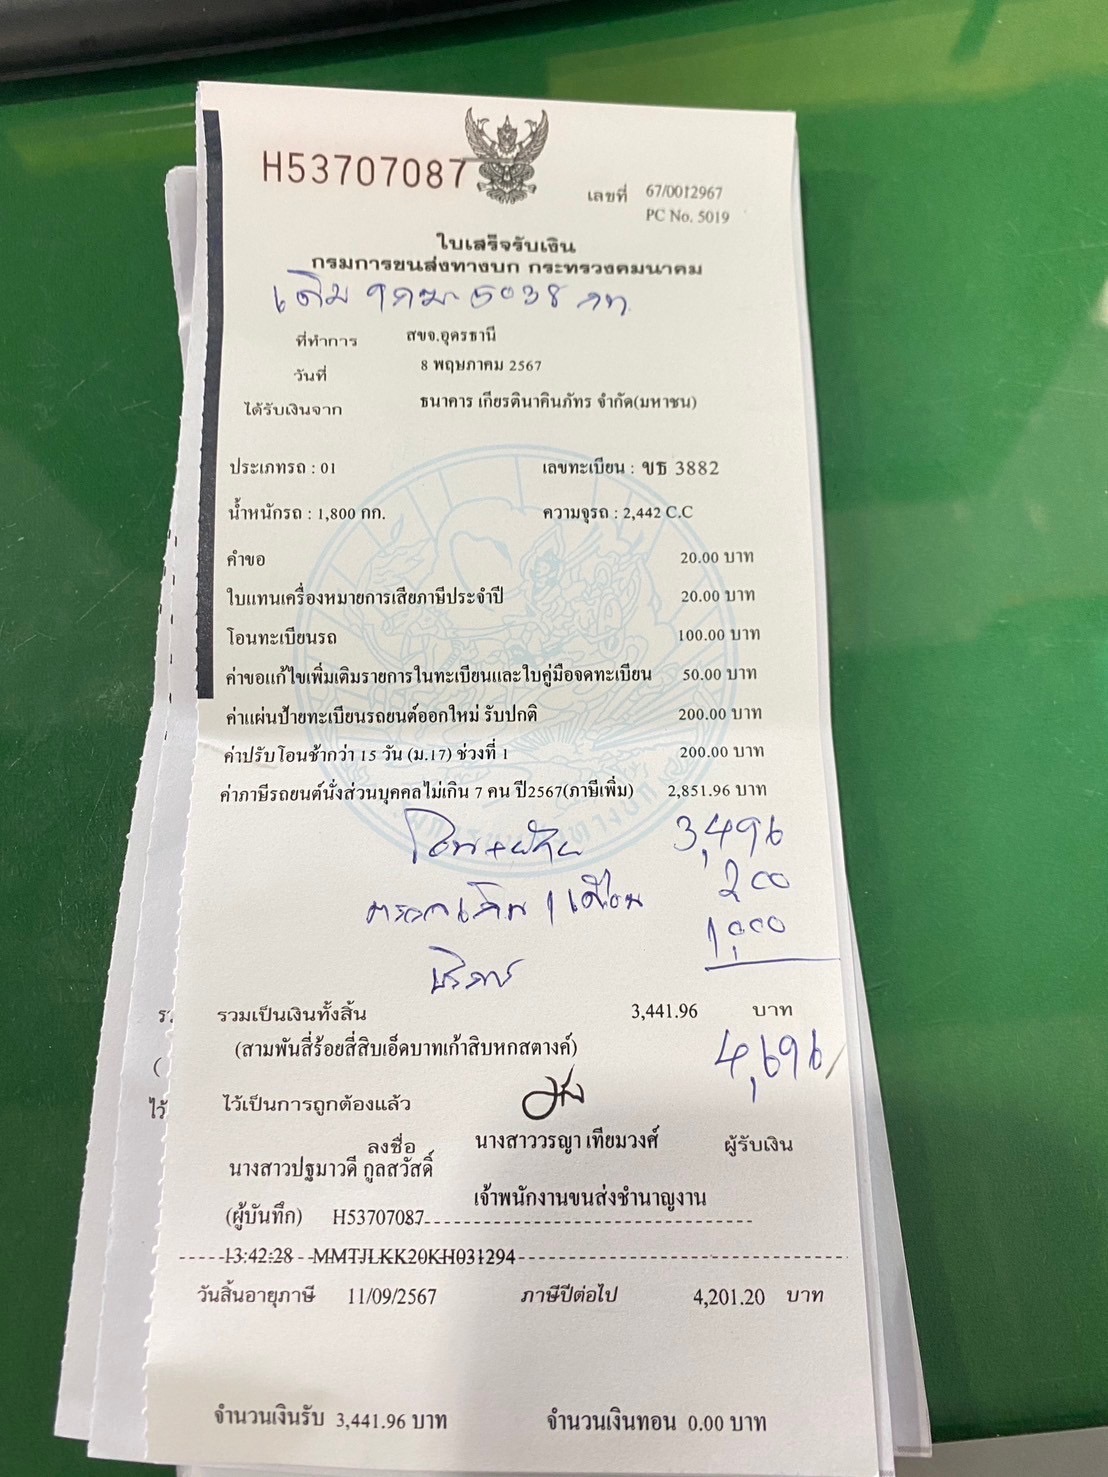 H53707087
เลขที่ 67/0012967
PC No. 5019
ใบเสร็จรับเงิน
กรมการขนส่งทางบก กระทรวงคมนาคม
เดิม 5038 กท
ที่ทำการ สขจ.อุดรธานี
วันที่ 8 พฤษภาคม 2567
ได้รับเงินจาก ธนาคาร เกียรตินาคินภัทร จำกัด(มหาชน)
ประเภทรถ : 01 เลขทะเบียน : ขธ 3882
น้ำหนักรถ : 1,800 กก. ความจุรถ : 2,442 C.C
คำขอ 20.00 บาท
ใบแทนเครื่องหมายการเสียภาษีประจำปี 20.00 บาท
โอนทะเบียนรถ 100.00 บาท
ค่าขอแก้ไขเพิ่มเติมรายการในทะเบียนและใบคู่มือจดทะเบียน 50.00 บาท
ค่าแผ่นป้ายทะเบียนรถยนต์ออกใหม่ รับปกติ 200.00 บาท
ค่าปรับโอนช้ากว่า 15 วัน (ม.17) ช่วงที่ 1 200.00 บาท
ค่าภาษีรถยนต์นั่งส่วนบุคคลไม่เกิน 7 คน ปี2567(ภาษีเพิ่ม) 2,851.96 บาท
โอน 3,496
1 เดือน 200
บริการ 1,000
รวมเป็นเงินทั้งสิ้น 3,441.96 บาท
(สามพันสี่ร้อยสี่สิบเอ็ดบาทเก้าสิบหกสตางค์) 4,696/
ไว้เป็นการถูกต้องแล้ว
ลงชื่อ นางสาววรญา เทียมวงศ์ ผู้รับเงิน
นางสาวปฐมาวดี กูลสวัสดิ์
เจ้าพนักงานขนส่งชำนาญงาน
(ผู้บันทึก) H53707087
13:42:28 MMTJLKK20KH031294
วันสิ้นอายุภาษี 11/09/2567 ภาษีปีต่อไป 4,201.20 บาท
จำนวนเงินรับ 3,441.96 บาท จำนวนเงินทอน 0.00 บาท